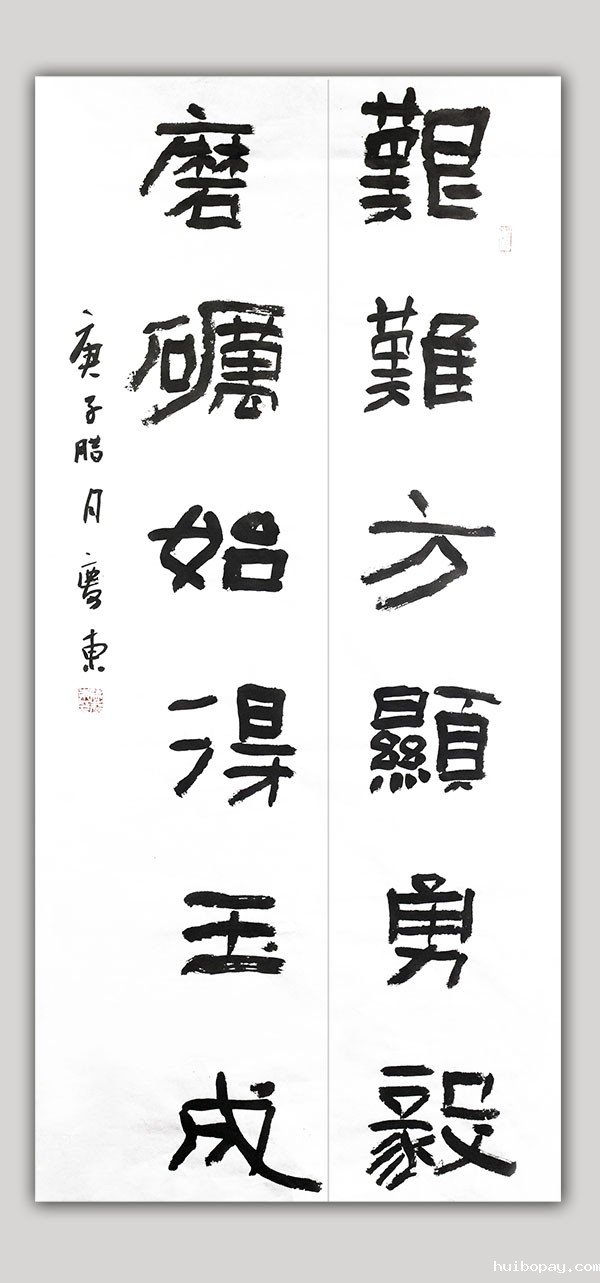 艱難方顯勇毅
磨礪始得玉成
庚子腊月慶東
huibopay.com